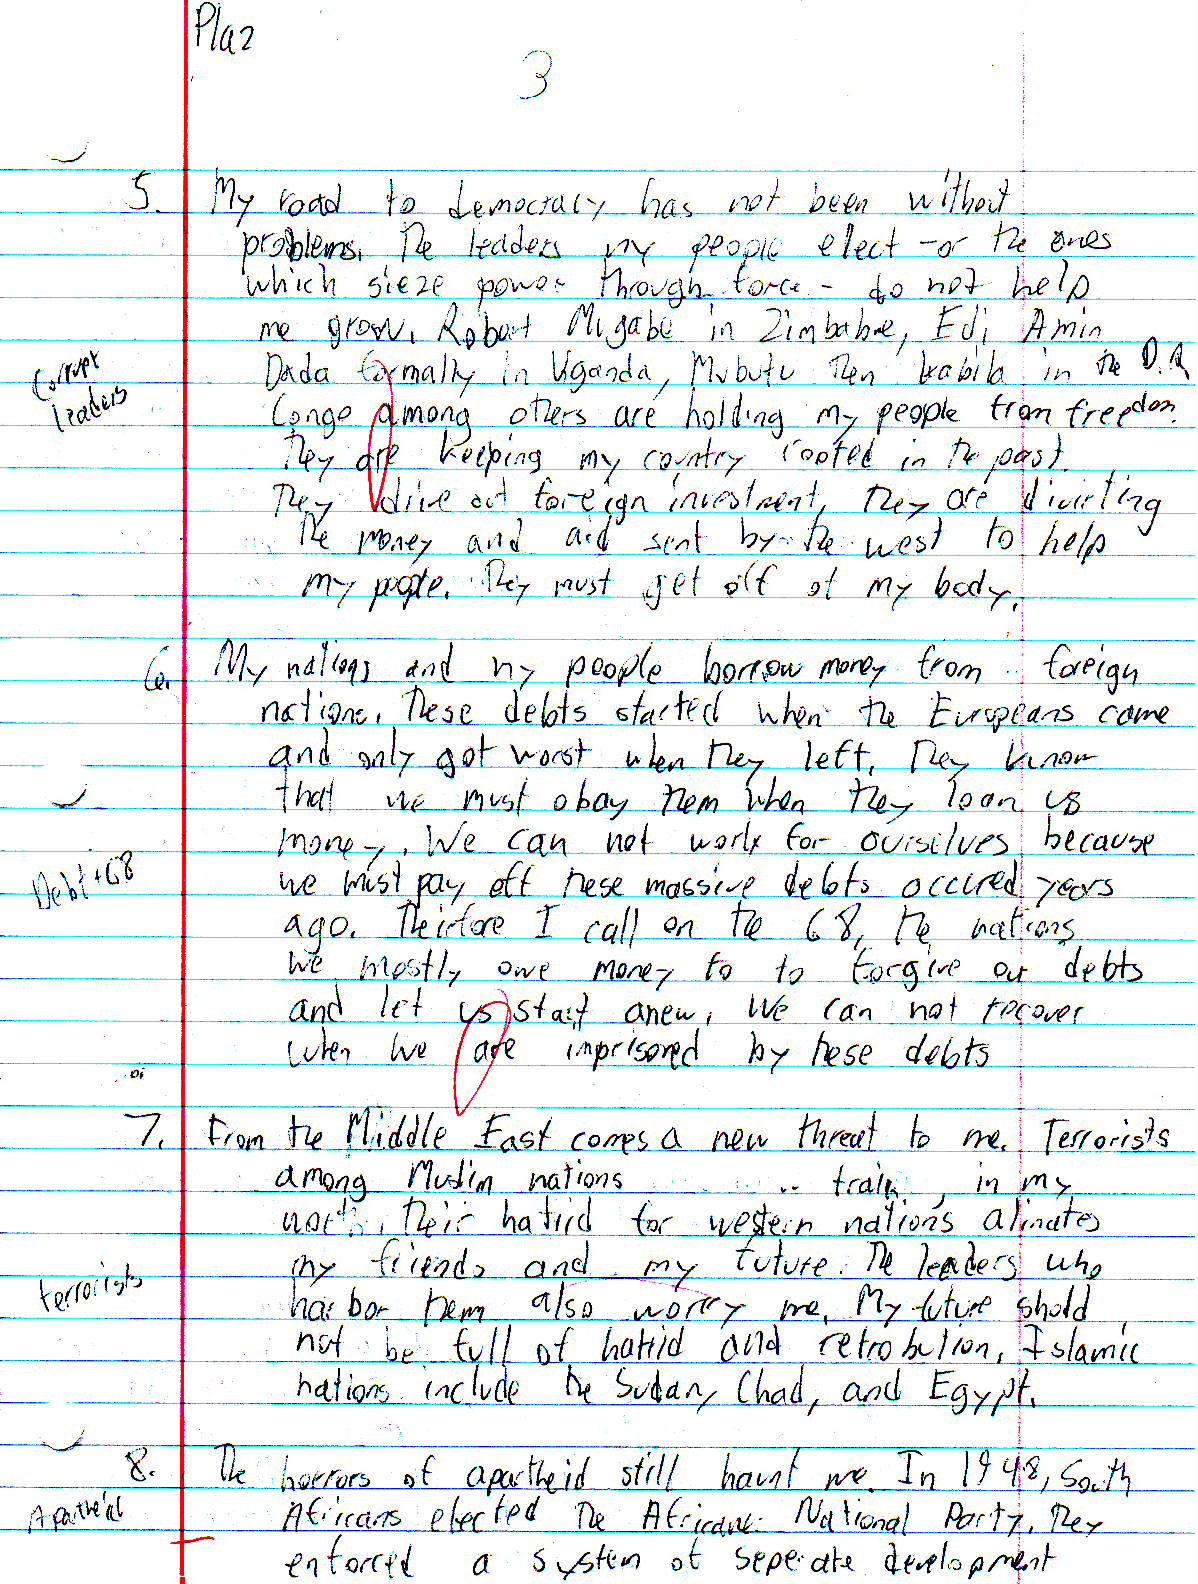 Pla2
3
5. My road to democracy has not been without
problems. The leaders my people elect - or the ones
which sieze power through force - do not help
me grow. Robert Mugabe in Zimbabwe, Edi Amin
Dada formally in Uganda, Mubutu then Kabila in the D.R.
Corrupt
leaders
Congo among others are holding my people from freedom.
They are keeping my country rooted in the past.
They drive out foreign investment, they are divirting
the money and aid sent by the west to help
my people. They must get off of my body.
6. My nations and my people borrow money from foreign
nations. These debts started when the Europeans came
and only got worst when they left. They know
that we must obay them when they loan us
money. We can not work for ourselves because
Debt + G8
we must pay off these massive debts occured years
ago. Theirfore I call on the G8, the nations
we mostly owe money to to forgive our debts
and let us start anew. We can not recover
when we are imprisoned by these debts
7. From the Middle East comes a new threat to me. Terrorists
among Muslim nations train in my
north. Their hatrid for western nations alinates
terrorists
my friends and my future. The leaders who
harbor them also worry me. My future shold
not be full of hatrid and retrobution. Islamic
nations include the Sudan, Chad, and Egypt.
8. The horrors of apartheid still haunt me. In 1948, South
Apartheid
Africans elected the Africans National Party. They
enforced a system of seperate development